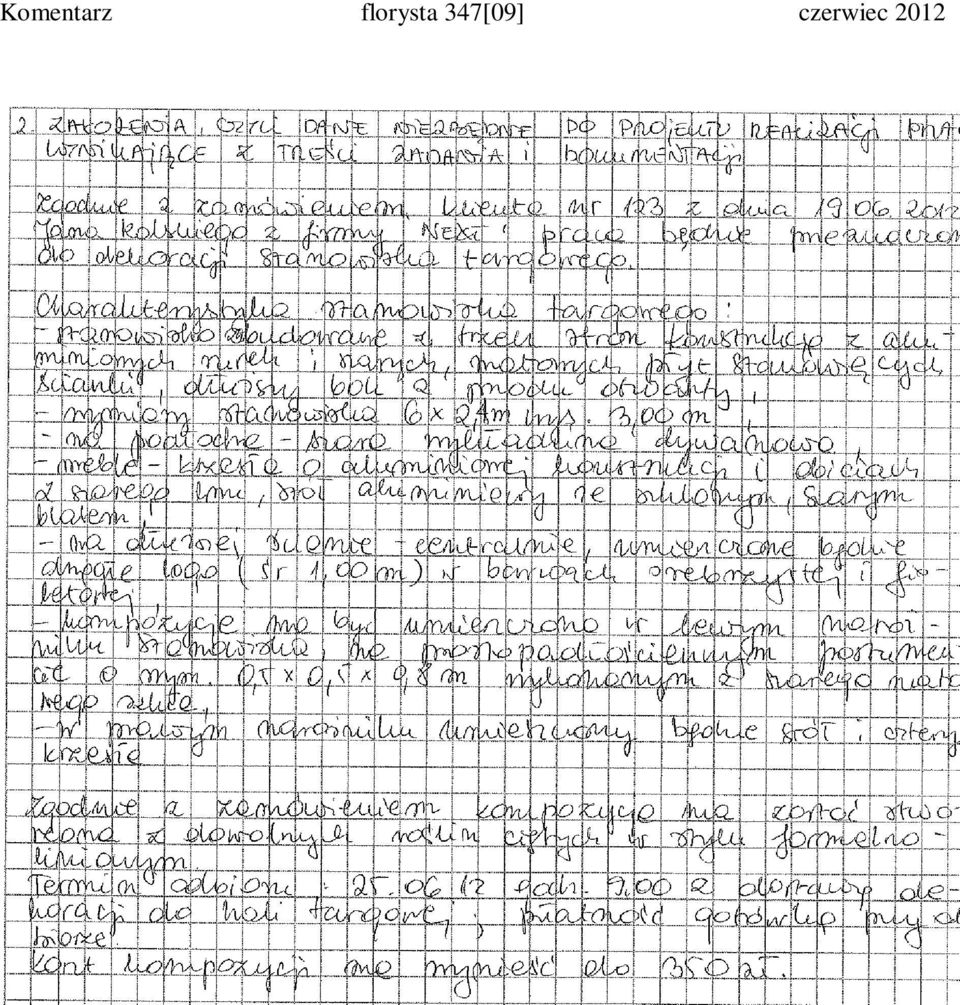 Komentarz florysta 347[09] czerwiec 2012
2. ZAŁOŻENIA, CZYLI DANE NIEZBĘDNE DO PROJEKTU REALIZACJI PRAC
WYNIKAJĄCE Z TREŚCI ZADANIA I DOKUMENTACJI
Zgodnie z zamówieniem klienta nr 123 z dnia 19.06.2012
Jana Kolskiego z firmy "NEXT" praca będzie przeznaczon
do dekoracji stanowiska targowego.
Charakterystyka stanowiska targowego:
- stanowisko zbudowane z trzech stron konstrukcją z alu-
miniowych rurek i szarych, matowych płyt stanowiących
ścianki, dłuższy bok z przodu otwarty,
- wymiary stanowiska 6 x 2,4m wys. 3,00 m,
- na podłodze - szara wykładzina dywanowa,
- meble - krzesła o aluminiowej konstrukcji i obiciach
z szarego lnu, stół aluminiowy ze szklanym, szarym
blatem,
- na dłuższej ścianie - centralnie, umieszczone będzie
okrągłe logo (śr 1,00 m) w barwach srebrzystej i fio-
letowej,
- kompozycja ma być umieszczona w lewym naroż-
niku stanowiska, na prostopadłościennym postumen
cie o wym. 0,5 x 0,5 x 0,8 m wykonanym z szarego mato
wego szkła,
- w prawym narożniku umieszczony będzie stół i cztery
krzesła
Zgodnie z zamówieniem kompozycja ma zostać stwo-
rzona z dowolnych roślin ciętych w stylu formalno-
liniowym.
Termin odbioru: 25.06.12 godz. 9.00 z dostawą de-
koracji do hali targowej; płatność gotówką przy od
biorze.
Koszt kompozycji ma wynieść do 350 zł.